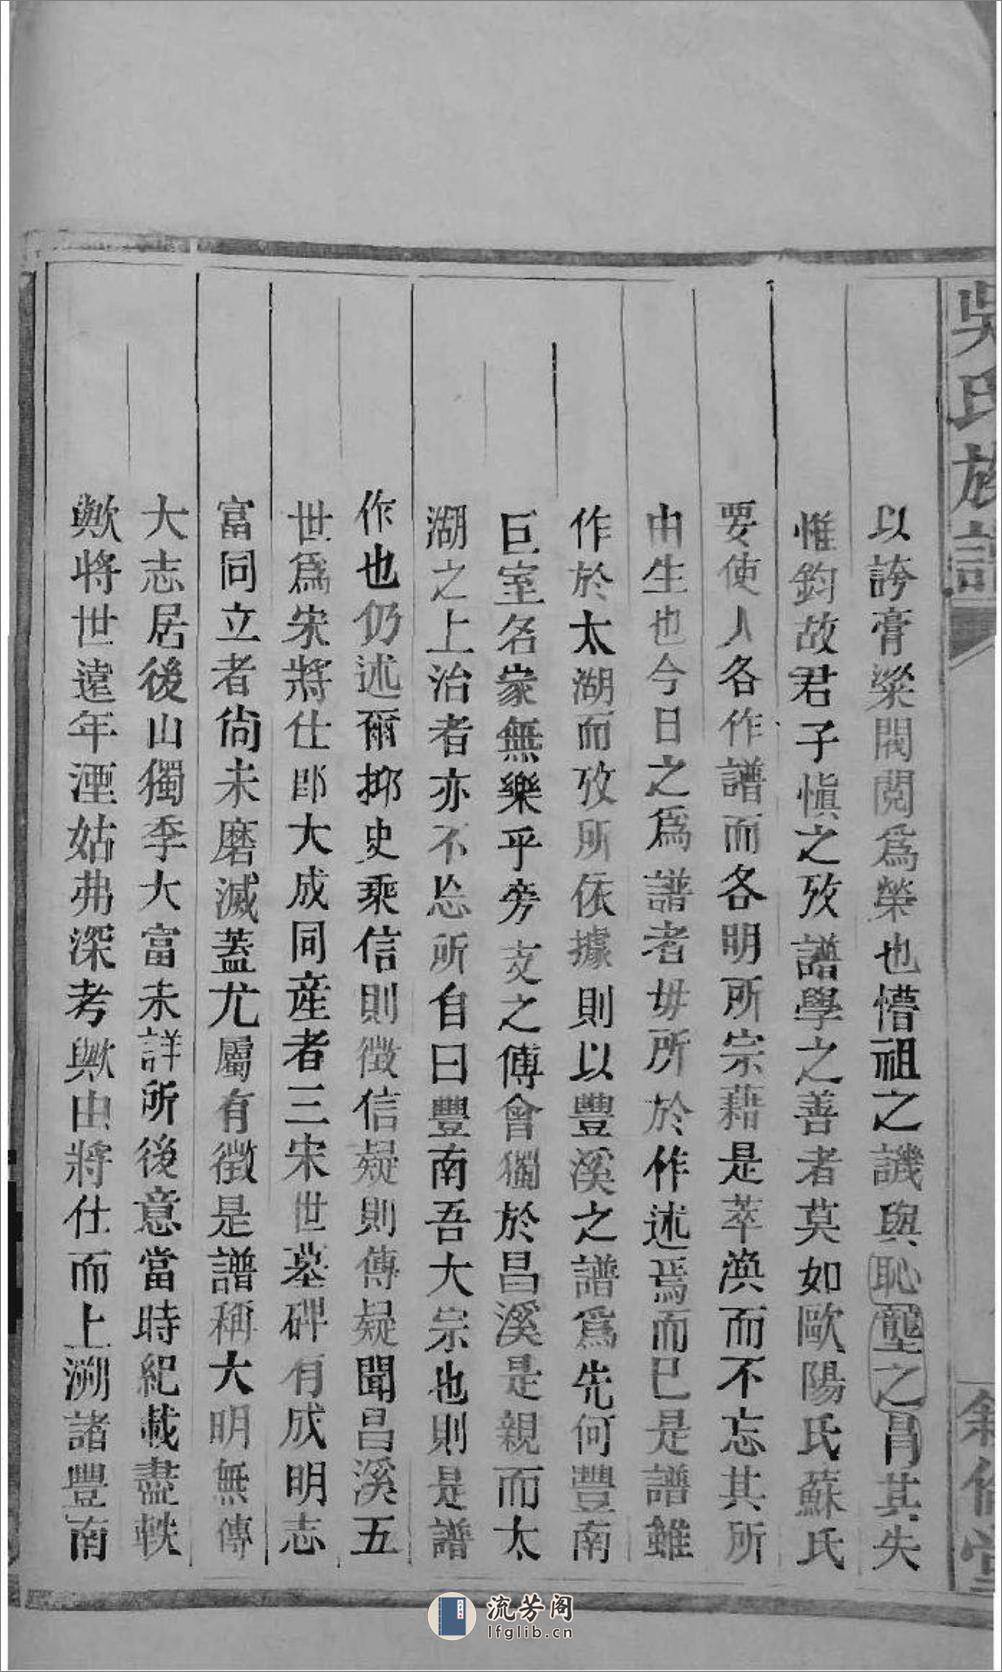 吳氏族譜
敘倫堂
以誇膏粱閥閱爲榮也懵祖之譏與恥壟之冐其失
惟鈞故君子愼之攷譜學之善者莫如歐陽氏蘇氏
要使人各作譜而各明所宗藉是萃渙而不忘其所
由生也今日之爲譜者毋所於作述焉而已是譜雖
作於太湖而攷所依據則以豐溪之譜爲先何豐南
巨室名彖無樂乎旁支之傅會獨於昌溪是親而太
湖之上治者亦不忘所自曰豐南吾大宗也則是譜
作也仍述爾抑史乘信則徵信疑則傳疑聞昌溪五
世爲宋將仕郎大成同産者三宋世墓碑有成明志
富同立者尙未磨滅蓋尤屬有徵是譜稱大明無傳
大志居後山獨季大富未詳所後意當時紀載盡軼
歟將世遠年湮姑弗深考歟由將仕而上溯諸豐南
流芳阁
lfglib.cn